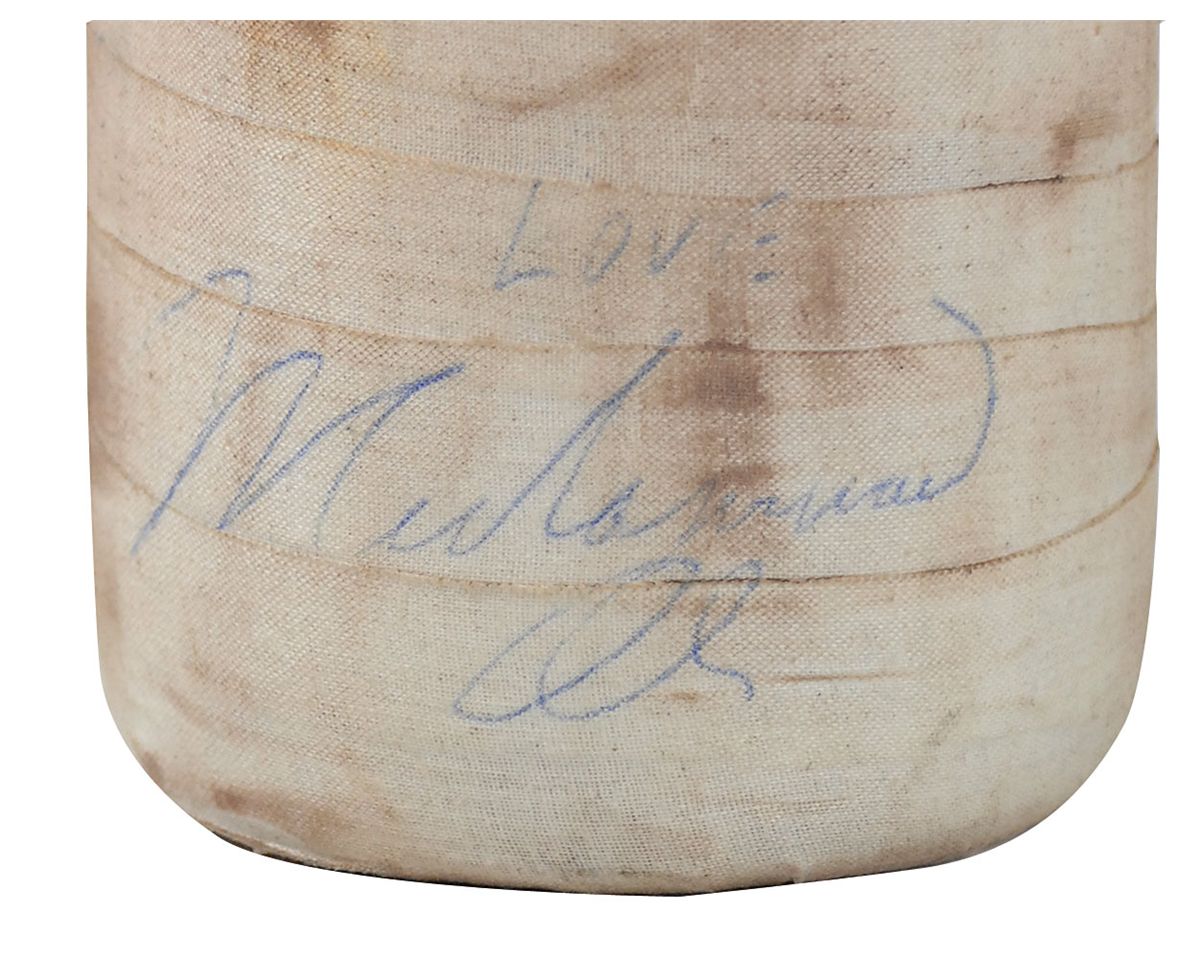 LOVE
Muhammad
Ali